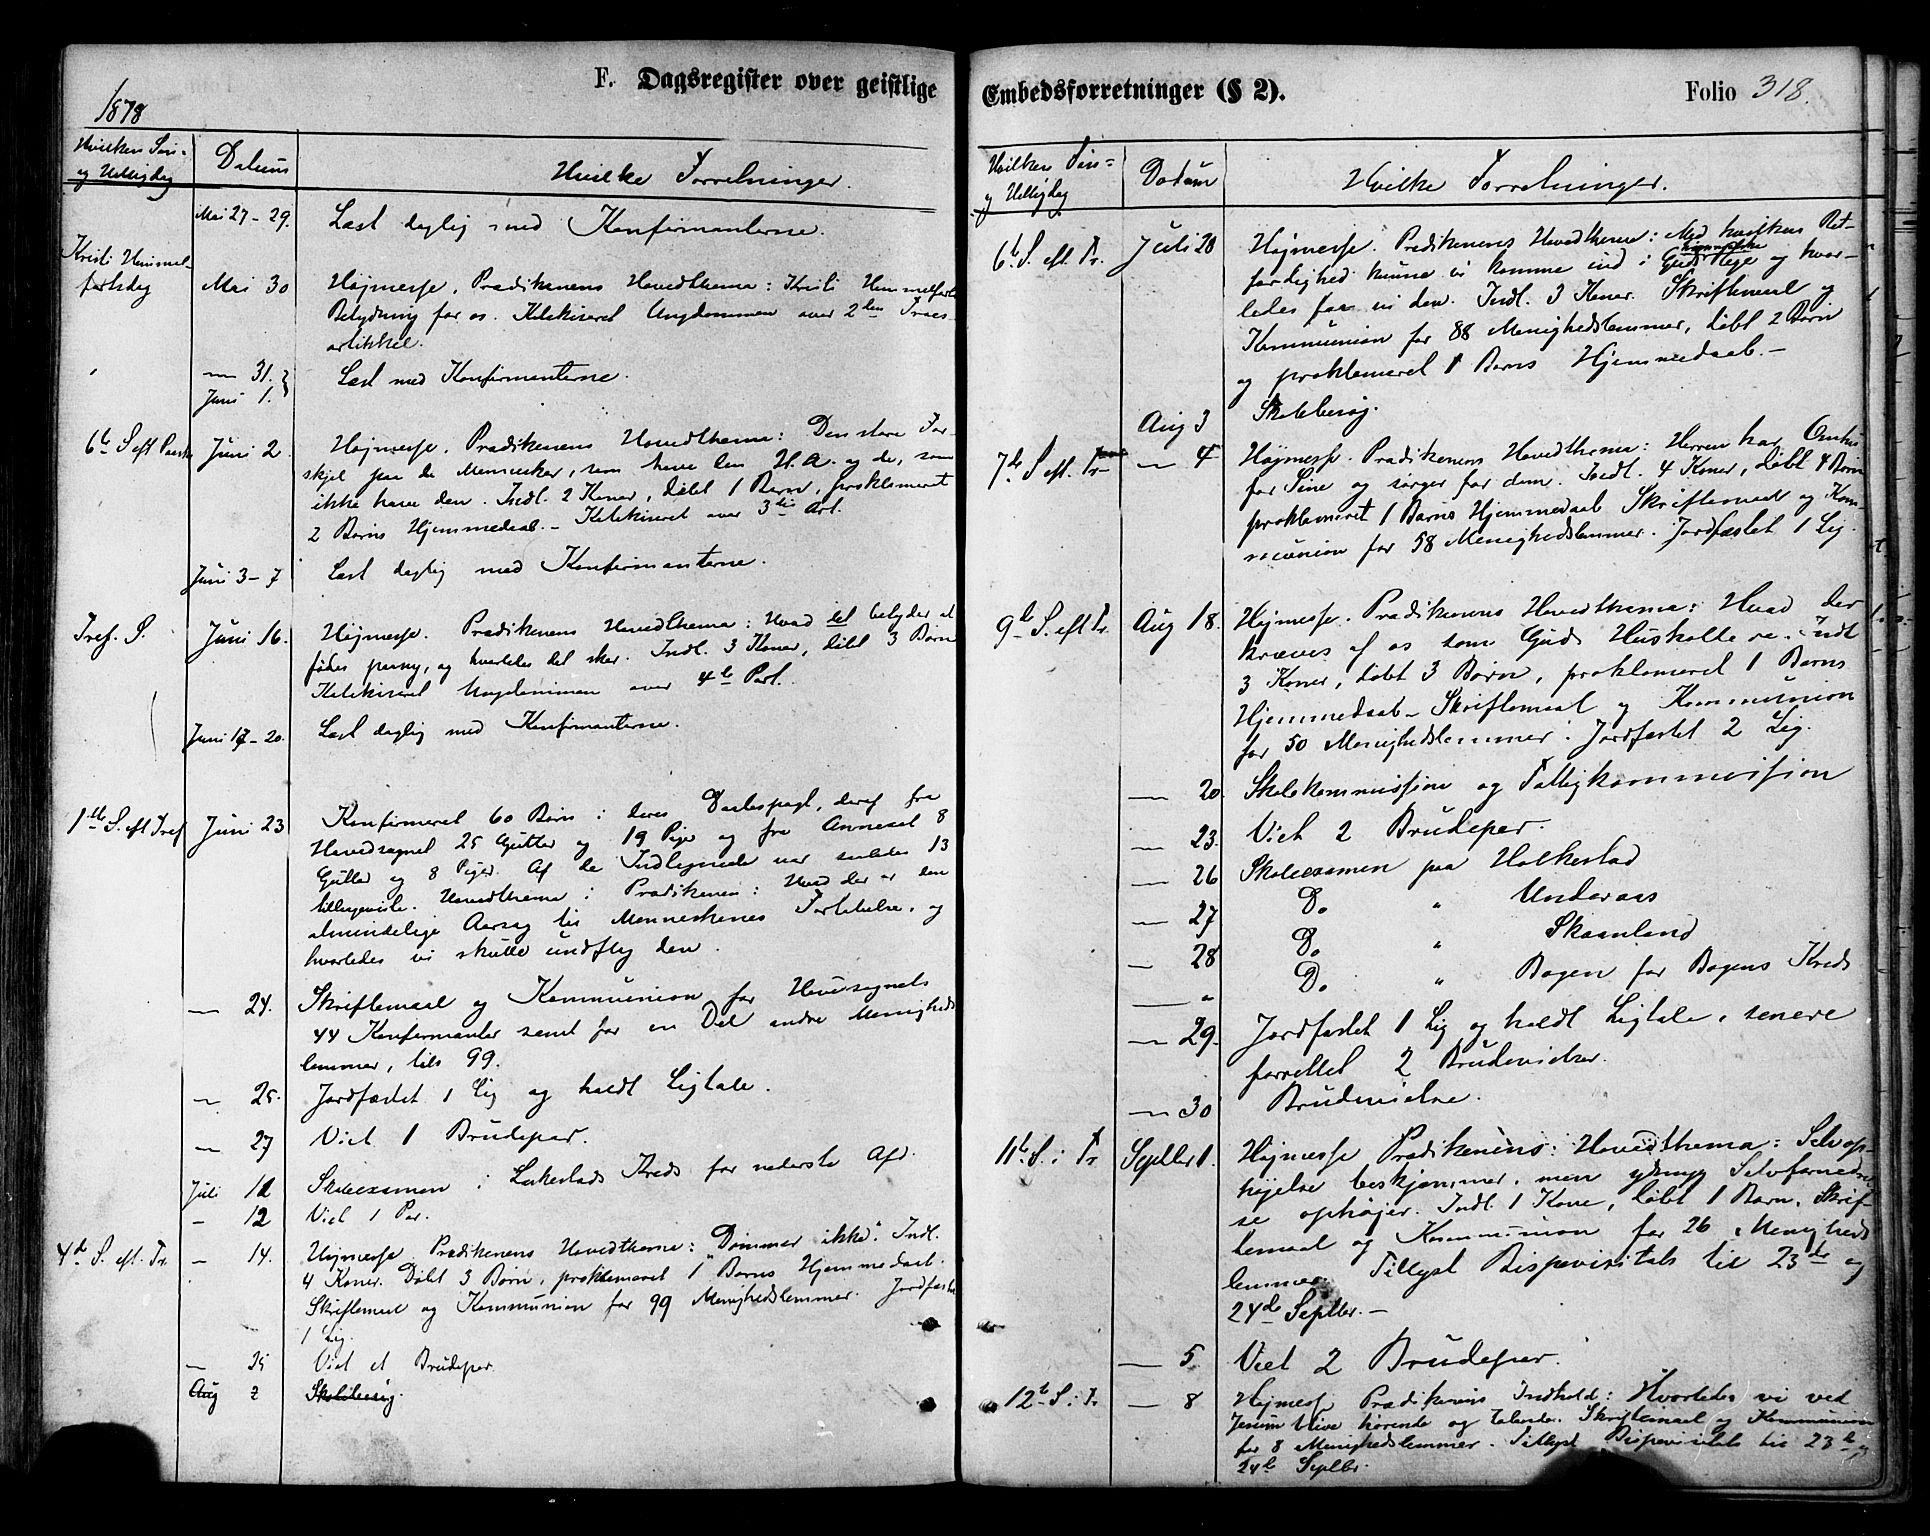 F. Dagsregister over geistlige
1878
Hvilken Søn-
og Helligdag
Datum
Hvilke Forretninger.
Mai 27-29.
Læst daglig med Konfirmanterne.
Kristi Himmel-
fartsdag
Mai 30
Højmesse. Prædikenens Hovedthema: Kristi Himmelfarts
Betydning for os. Katekiseret Ungdommen over 2den Troes-
artikkel.
— 31.
Juni 1.
Læst med Konfirmanterne.
6te S eft Paaske
Juni 2
Højmesse. Prædikenens Hovedthema: Den store For-
skjel paa de Mennesker, som have den H. A. og de, som
ikke have den. Indl. 2 Koner, døbt 1 Barn, proklameret
2 Børns Hjemmedaab. - Katekiseret over 3die Art.
Juni 3-7
Læst daglig med Konfirmanterne.
Tref. S.
Juni 16.
Højmesse. Prædikenens Hovedthema: Hvad det betyder at
fødes paany, og hvorledes det sker. Indl. 3 Koner, døbt 3 Børn
Katekiseret Ungdommen over 4de Part.
Juni 17-20.
Læst daglig med Konfirmanterne.
1ste S. eft Tref
Juni 23
Konfirmeret 60 Børn i deres Daabspagt, deraf fra
Hovedsognet 25 Gutter og 19 Piger og fra Annexet 8
Gutter og 8 Piger. Af de Indtegnede var saaledes 13
tilbageviste. Hovedthema i Prædikenen: Hvad der er den
almindelige Aarsag til Menneskenes Fortabelse, og
hvorledes vi skulle undfly den.
— 24.
Skriftemaal og Kommunion for Hovedsognets
44 Konfirmanter samt for en Del andre Menigheds
lemmer, tils 99.
— 25.
Jordfæstet 1 Lig og holdt Ligtale.
— 27
Viet 1 Brudepar.
Juli 12
Skoleexamen i Kreds for nederste Afd.
- 12
Viet 1 Par.
4de S. eft. Tr.
- 14.
Højmesse. Prædikenens Hovedthema: "Dømmer ikke". Indl.
4 Koner. Døbt 3 Børn, proklameret 1 Barns Hjemmedaab.
Skriftemaal og Kommunion for 99 Menighedslemmer. Jordfæstet
1 Lig.
— 25
Viet et Brudepar.
Aug 2
Skolebesøg.
Embedsforretninger (§ 2).
Folio 318.
Hvilken Søn-
og Helligdag
Datum
Hvilke Forretninger.
6te S. eft. Tr.
Juli 28
Højmesse. Prædikenens Hovedthema: Med hvilken Ret-
færdighed kunne vi komme ind i Guds Rige og hvor-
himmelske
ledes faa vi den. Indl. 3 Koner. Skriftemaal og
Kommunion for 88 Menighedslemmer, døbt 2 Børn
og proklameret 1 Barns Hjemmedaab. -
Aug 3
Skolebesøg.
7de S. eft. Tr.
— 4
Højmesse. Prædikenens Hovedthema: Herren har Omhu
for Sine og sørger for dem. Indl. 4 Koner, døbt 4 Børn
proklameret 1 Barns Hjemmedaab Skriftemaal og Kom-
munion for 58 Menighedslemmer. Jordfæstet 1 Lig.
9de S. eft Tr.
Aug 18.
Højmesse. Prædikenens Hovedthema: Hvad der
kræves af os som Guds Husholdere. Indl
3 Koner, døbt 3 Børn, proklameret 1 Barns
Hjemmedaab - Skriftemaal og Kommunion
for 50 Menighedslemmer. Jordfæstet 2 Lig.
— 20.
Skolekommission og Fattigkommission
— 23.
Viet 2 Brudepar.
— 26
Skoleexamen paa Holkestad
— 27
Do " Underaas
— 28
Do " Skaanland
— "
Do " Bogen for Bogens Kreds
— 29.
Jordfæstet 1 Lig og holdt Ligtale, senere
forrettet 2 Brudevielser.
— 30
Brudevielse.
11te S. i Tr
Septber 1.
Højmesse Prædikenens Hovedthema: Selvop-
højelse beskjæmmer, men ydmyg Selvfornedrel
se ophøjer. Indl. 1 Kone, døbt 1 Barn. Skrif-
temaal og Kommunion for 26 Menigheds
lemmer. Tillyst Bispevisitats til 23de og
24de Septbr. -
— 5.
Viet 2 Brudepar.
12te S. i Tr
— 8
Højmesse Prædikenens Indhold: Hvorledes vi ved
Jesum blive hørende og talende. Skriftemaal og Kommunion
for 8 Menighedslemmer. Tillyst Bispevisitats til 23de og
24de Septbr.